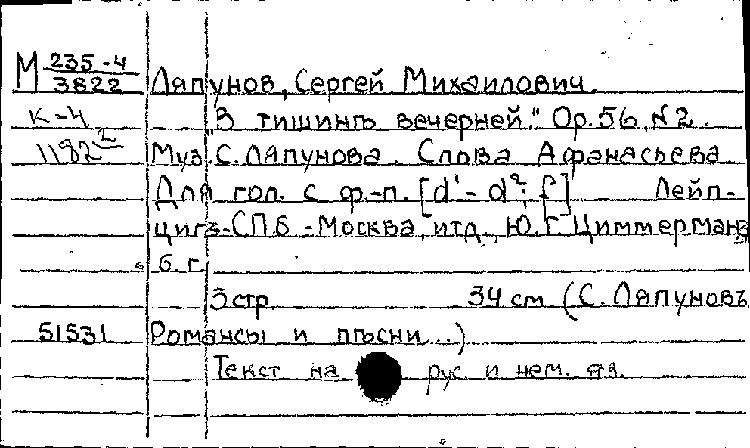 М 235-4
3822 Ляпунов, Сергей Михаилович.
К-4 "В тишинѣ вечерней." Ор. 56, №2.
1182² Муз. С. Ляпунова. Слова Афанасьева
Для гол. с ф.-п. [d¹- d²; f] Лейп-
цигъ-СПб-Москва, итд., Ю.Г. Циммерманъ
б. г.
3 стр. 34 см (С. Ляпуновъ
51531 Романсы и пѣсни...)
Текст на рус. и нем. яз.